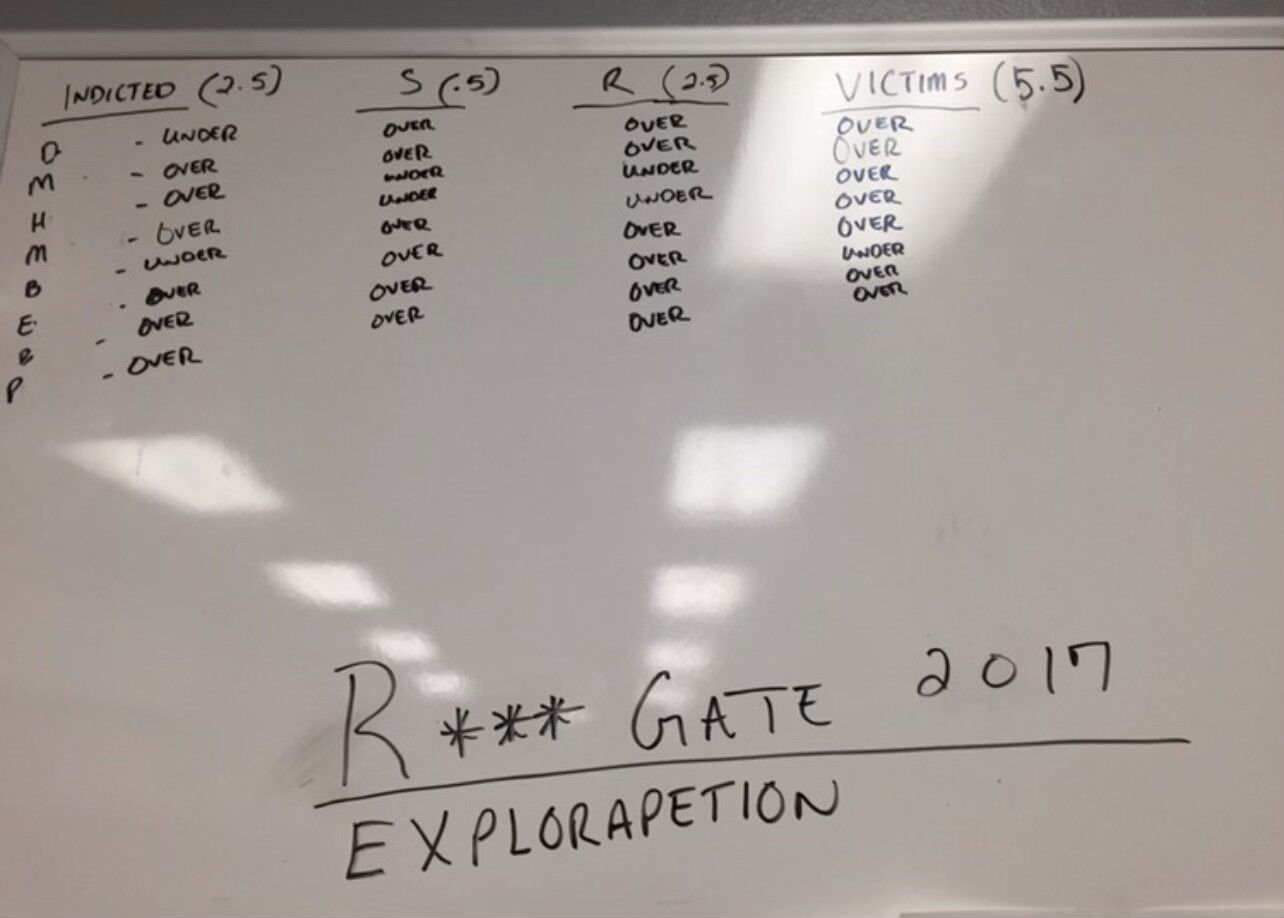 INDICTED (2.5) S (.5) R (2.5) VICTIMS (5.5)
D - UNDER OVER OVER OVER
M - OVER OVER OVER OVER
H - OVER UNDER UNDER OVER
M - OVER UNDER UNDER OVER
B - UNDER OVER OVER OVER
E - OVER OVER OVER UNDER
B - OVER OVER OVER OVER
P - OVER OVER OVER OVER
R *** GATE 2017
EXPLORAPETION